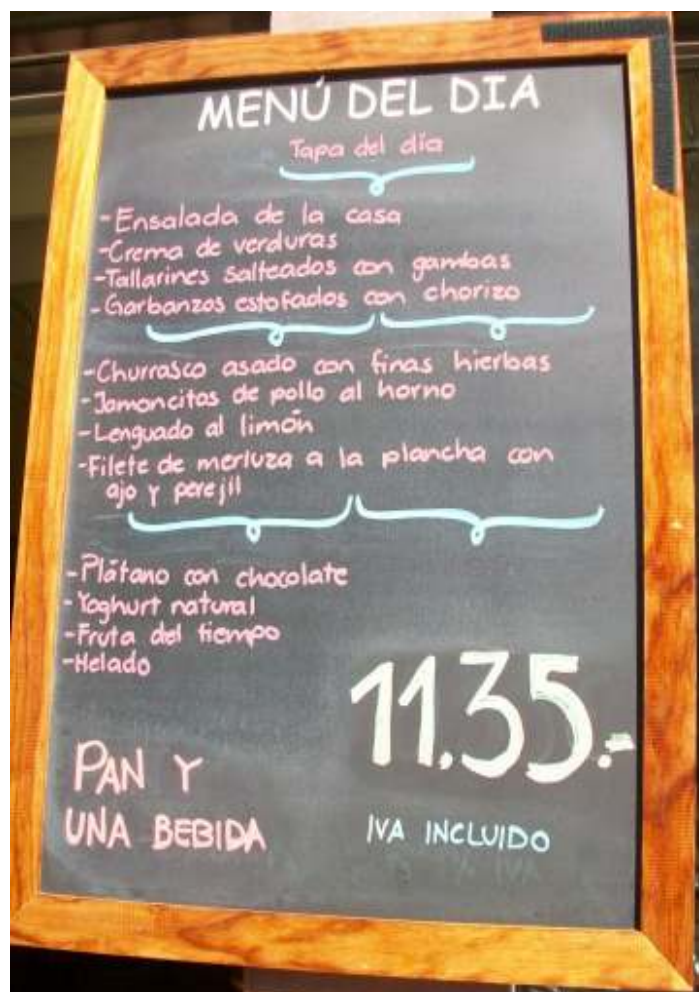 MENÚ DEL DIA
Tapa del día
-Ensalada de la casa
-Crema de verduras
-Tallarines salteados con gambas
-Garbanzos estofados con chorizo
-Churrasco asado con finas hierbas
-Jamoncitos de pollo al horno
-Lenguado al limón
-Filete de merluza a la plancha con
ajo y perejil
-Plátano con chocolate
-Yoghurt natural
-Fruta del tiempo
-Helado
11.35.-
PAN Y
UNA BEBIDA
IVA INCLUIDO
% IVA